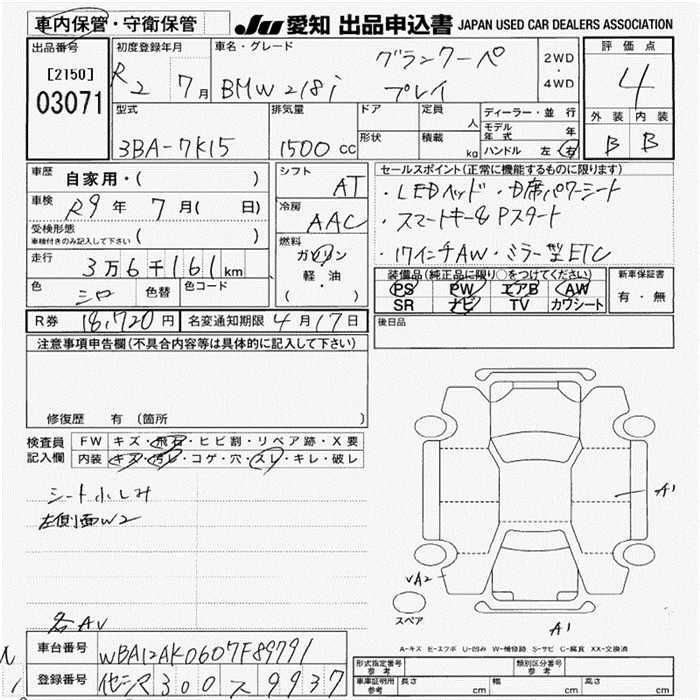 車内保管・守衛保管
JU 愛知 出品申込書 JAPAN USED CAR DEALERS ASSOCIATION
出品番号
[2150]
03071
初度登録年月
R2 7月
車名・グレード
グランクーペ
BMW 218i プレイ
2WD・4WD
評価点
4
外装 内装
B B
型式
3BA-7K15
排気量
1500 cc
ドア
形状
定員 人
積載 kg
ディーラー・並行
モデル年式 年
ハンドル 左・右
車歴 自家用・( )
車検 R9年 7月( 日)
受検形態
車検付きのみ記入して下さい ( )
走行 3万6千161km
色 シロ 色替 色コード
シフト AT
冷房 AAC
燃料
ガソリン
軽・油
( ・ )
セールスポイント(正常に機能するものに限ります)
・LEDヘッド・D席パワーシート
・スマートキー& Pスタート
・17インチAW・ミラー型ETC
装備品(純正品に限り○をつけてください)
PS PW エアB AW
SR ナビ TV カワシート
新車保証書
有・無
後日品
R券 18,720円 名変通知期限 4月17日
注意事項申告欄(不具合内容等は具体的に記入して下さい)
修復歴 有 (箇所 )
検査員記入欄
FW キズ・飛石・ヒビ割・リペア跡・X要
内装 キズ・汚レ・コゲ・穴・スレ・キレ・破レ
シート小しみ
左側面W2
各AV
A1
VA2
スペア
A1
A-キズ E-エクボ U-凹み W-補修跡 S-サビ C-腐食 XX-交換済
車台番号 WBA12AK0607F89791
登録番号 300ス9937
形式指定番号 参考
類別区分番号 参考
車庫証明用 参考 長さ cm 幅 cm 高さ cm